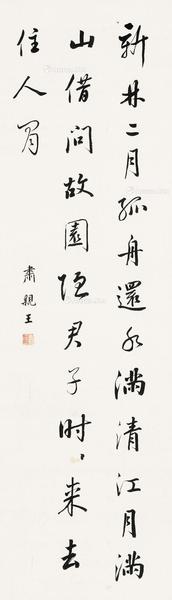 新林二月孤舟還水滿清江月滿
山借問故園隱君子时〻来去
住人間
肅親王